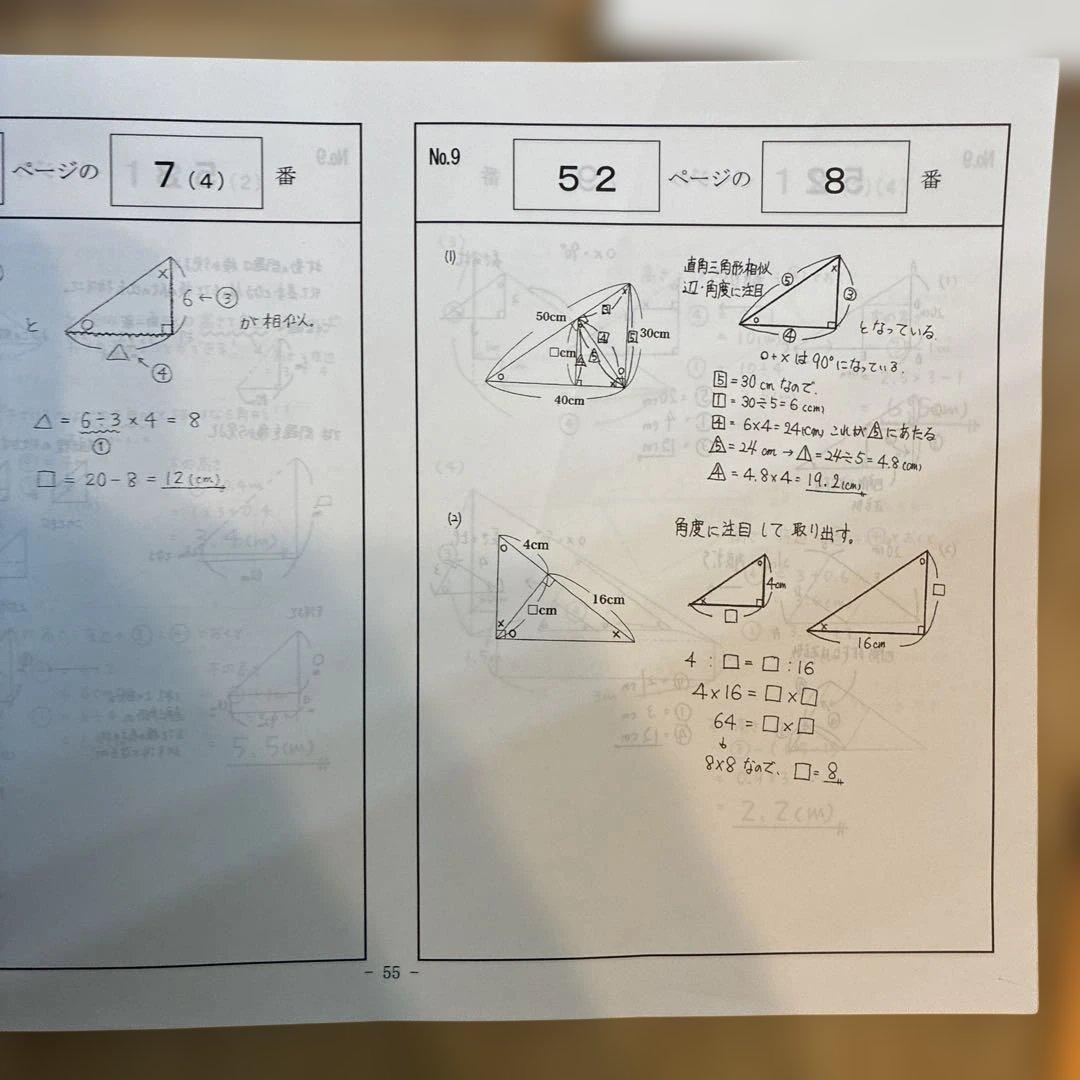 ページの 7(4) 番
と
×
○
6←③
が相似。
△
④
△ = 6÷3×4 = 8
①
□ = 20-8 = 12(cm)
No.9 52 ページの 8 番
(1)
50cm
30cm
□cm
40cm
直角三角形相似
辺・角度に注目
⑤
③
④
となっている.
○+×は90°になっている.
5 = 30cmなので.
1 = 30÷5=6(cm)
4 = 6×4=24(cm) これが5にあたる
5 = 24cm → 1 = 24÷5=4.8(cm)
4 = 4.8×4=19.2(cm)
(2)
4cm
□cm
16cm
角度に注目して取り出す。
4cm
□
□
16cm
4:□=□:16
4×16=□×□
64=□×□
↓
8×8なので、□=8
- 55 -